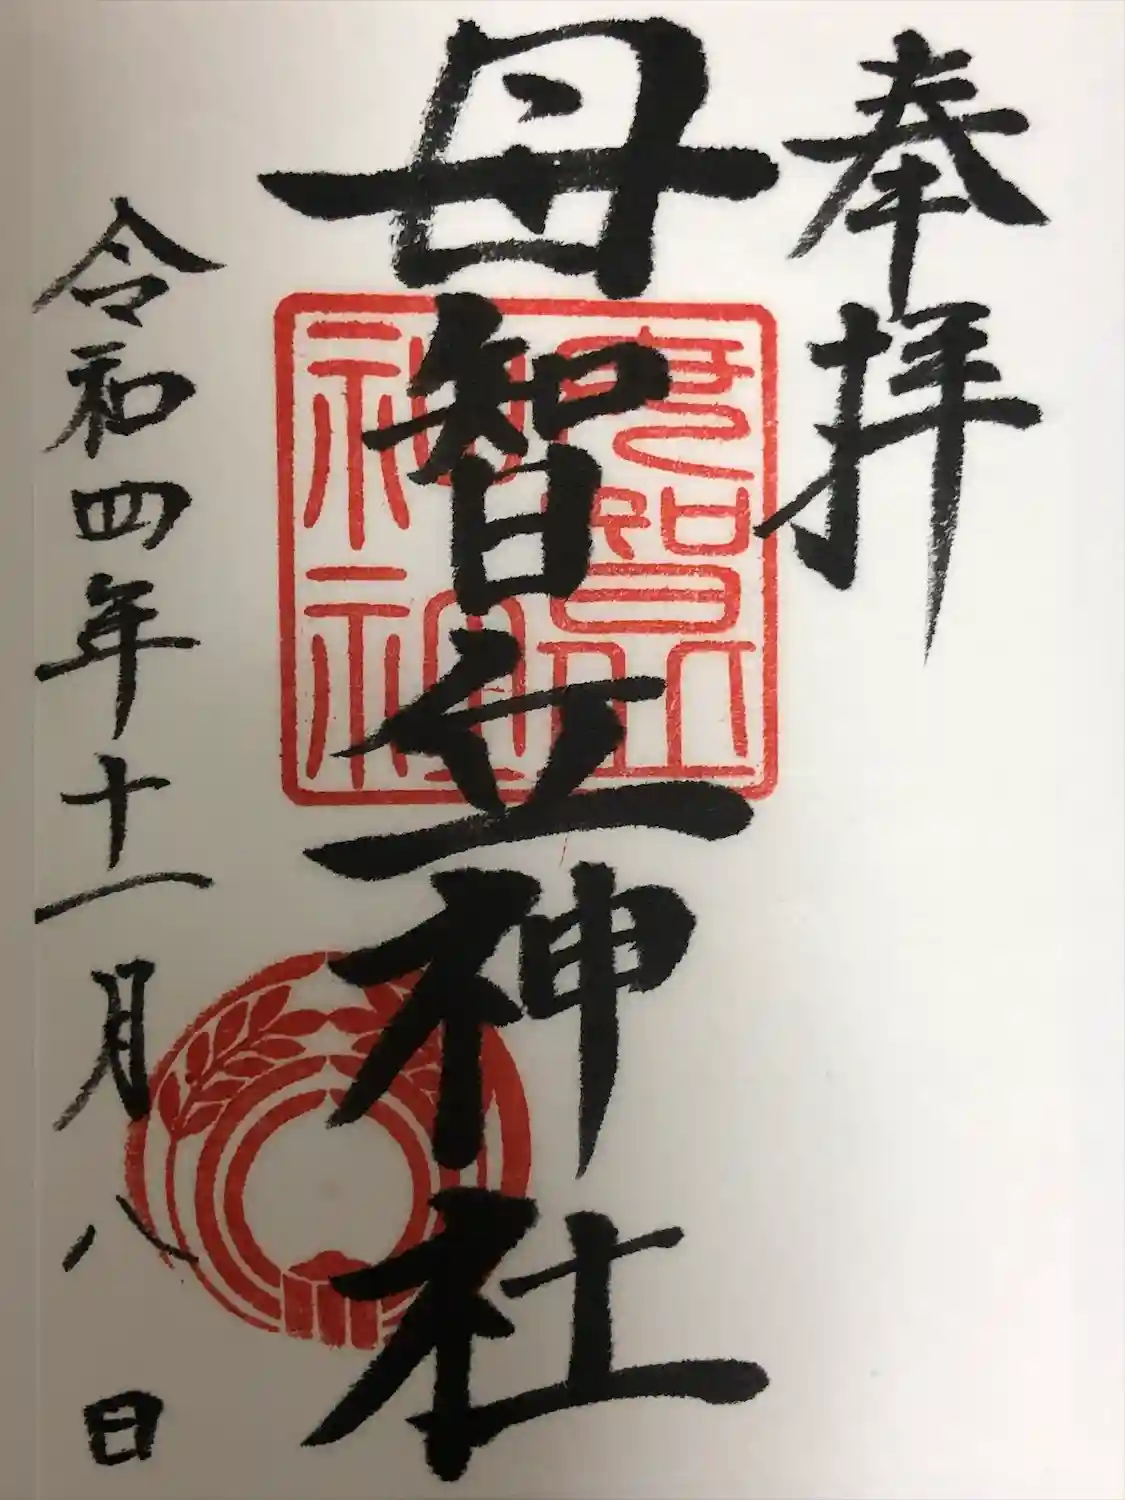 奉拝
母智丘神社
令和四年十一月八日
母智丘
神社